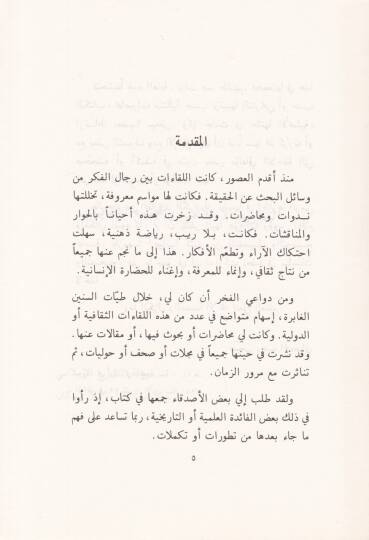 المقدمة
منذ أقدم العصور، كانت اللقاءات بين رجال الفكر من
وسائل البحث عن الحقيقة. فكانت لها مواسم معروفة، تخللتها
ندوات ومحاضرات. وقد زخرت هذه أحياناً بالحوار
والمناقشات. فكانت، بلا ريب، رياضة ذهنية، سهلت
احتكاك الآراء وتطعّم الأفكار. هذا إلى ما نجم عنها جميعاً
من نتاج ثقافي، وإنماء للمعرفة، وإغناء للحضارة الإنسانية.
ومن دواعي الفخر أن كان لي، خلال طيّات السنين
الغابرة، إسهام متواضع في عدد من هذه اللقاءات الثقافية أو
الدولية. وكانت لي محاضرات أو بحوث فيها، أو مقالات عنها.
وقد نشرت في حينها جميعاً في مجلات أو صحف أو حوليات، ثم
تناثرت مع مرور الزمان.
ولقد طلب إلي بعض الأصدقاء جمعها في كتاب، إذ رأوا
في ذلك بعض الفائدة العلمية أو التاريخية، ربما تساعد على فهم
ما جاء بعدها من تطورات أو تكملات.
٥